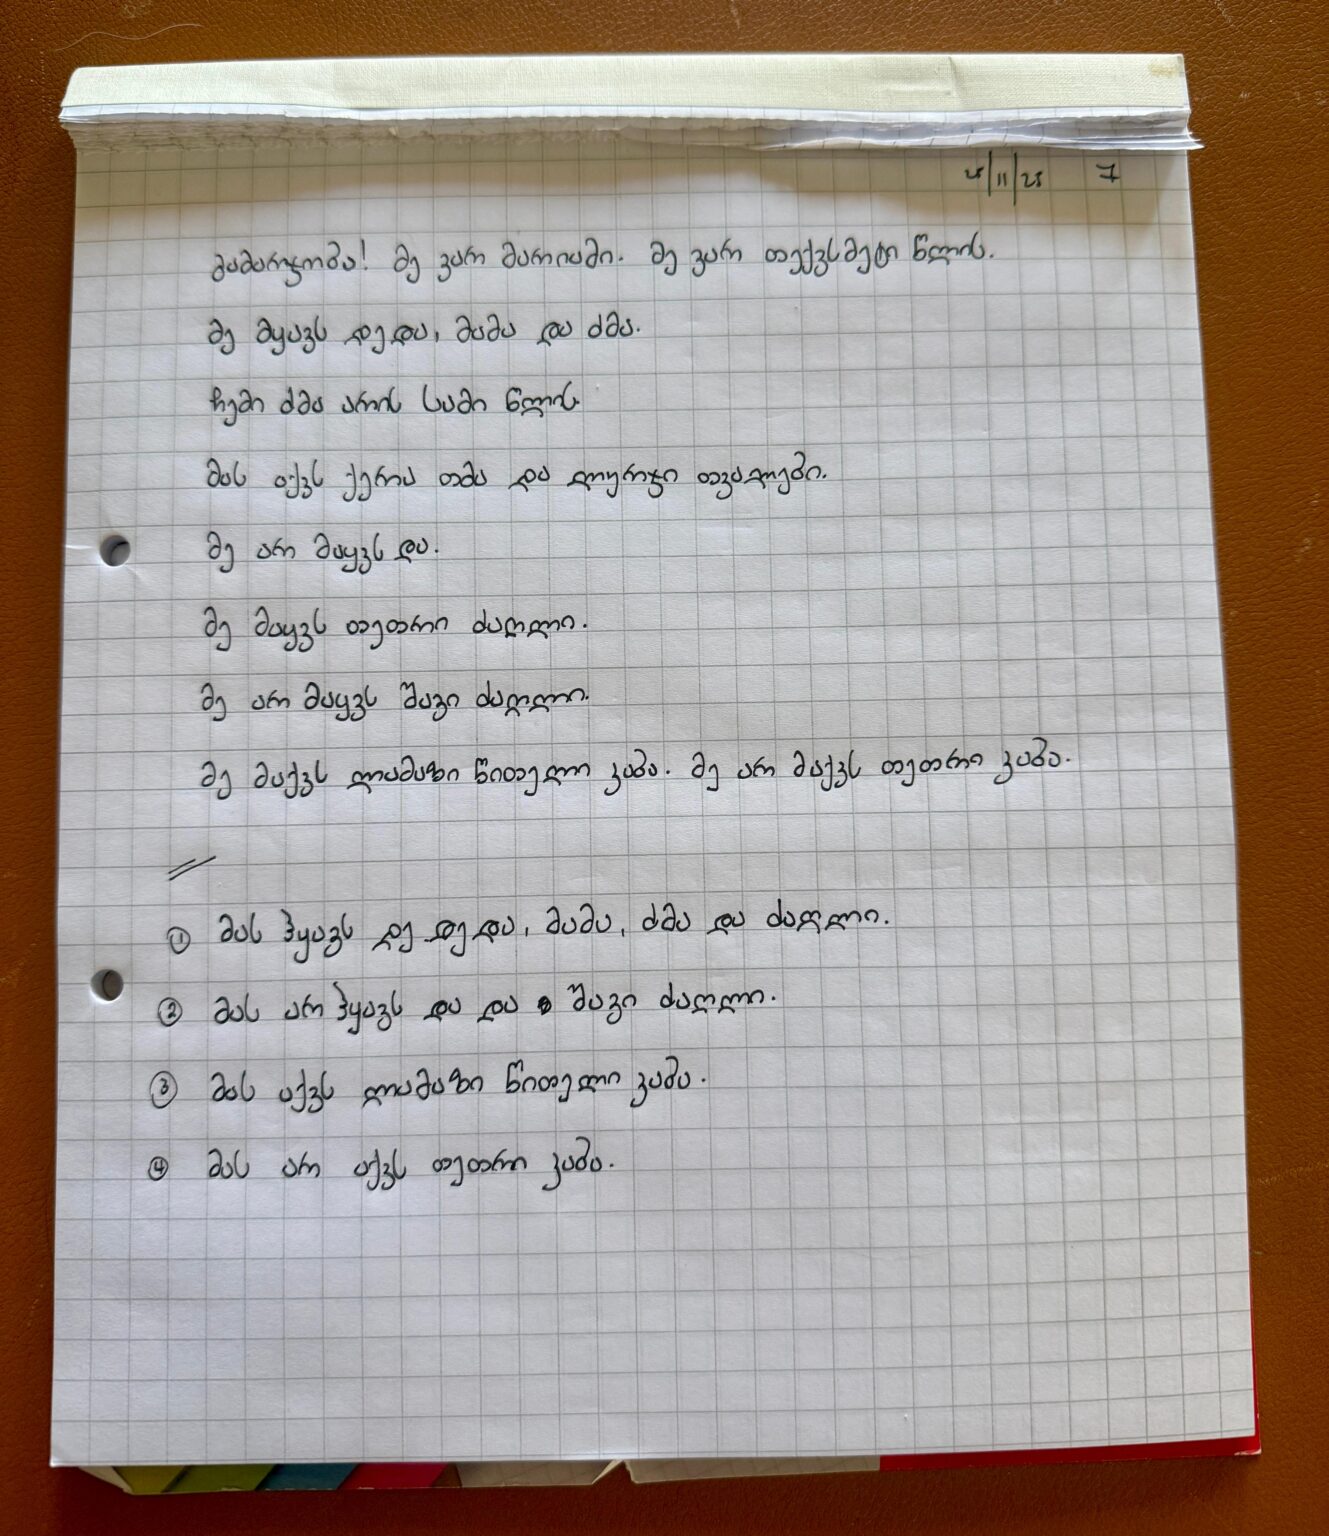 25/11/25 7
გამარჯობა! მე ვარ მარიამი. მე ვარ თექვსმეტი წლის.
მე მყავს დედა, მამა და ძმა.
ჩემი ძმა არის სამი წლის
მას აქვს ქერა თმა და ლურჯი თვალები.
მე არ მაყვს და.
მე მაყვს თეთრი ძაღლი.
მე არ მაყვს შავი ძაღლი.
მე მაქვს ლამაზი წითელი კაბა. მე არ მაქვს თეთრი კაბა.
① მას ჰყავს დე დედა, მამა, ძმა და ძაღლი.
② მას არ ჰყავს და და შავი ძაღლი.
③ მას აქვს ლამაზი წითელი კაბა.
④ მას არ აქვს თეთრი კაბა.